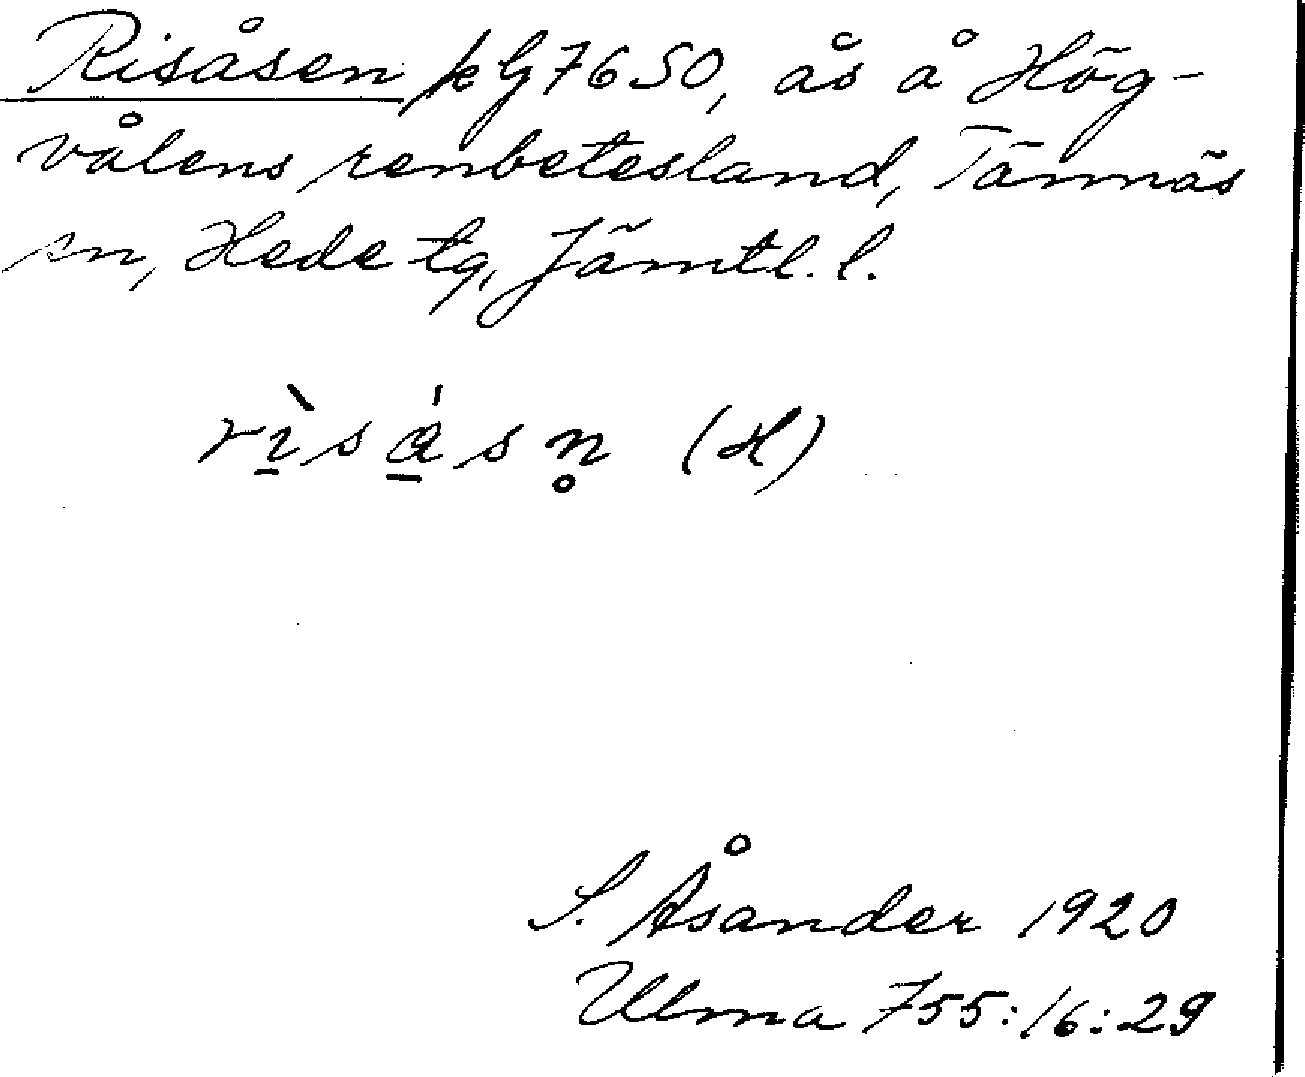 Risåsen kG7650, ås å Hög-
vålens renbetesland, Tännäs
sn, Hede tg, Jämtl. l.
(H)
S. Åsander 1920
Ulma 755:16:29